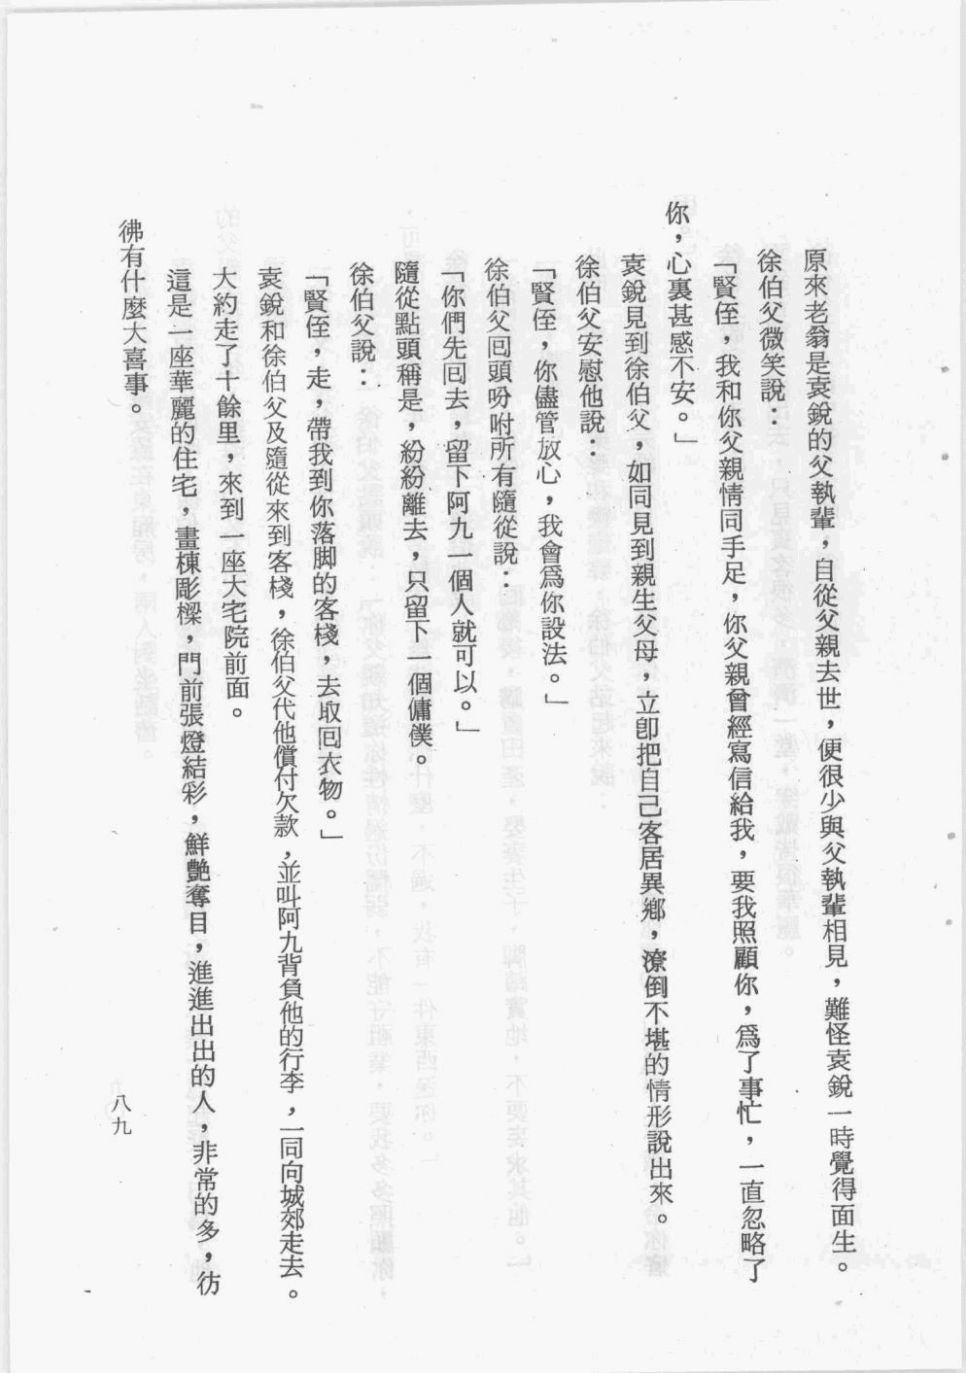 原來老翁是袁銳的父執輩，自從父親去世，便很少與父執輩相見，難怪袁銳一時覺得面生。
徐伯父微笑說：
「賢侄，我和你父親情同手足，你父親曾經寫信給我，要我照顧你，爲了事忙，一直忽略了
你，心裏甚感不安。」
袁銳見到徐伯父，如同見到親生父母，立卽把自己客居異鄉，潦倒不堪的情形說出來。
徐伯父安慰他說：
「賢侄，你儘管放心，我會爲你設法。」
徐伯父囘頭吩咐所有隨從說：
「你們先囘去，留下阿九一個人就可以。」
隨從點頭稱是，紛紛離去，只留下一個傭僕。
徐伯父說：
「賢侄，走，帶我到你落脚的客棧，去取囘衣物。」
袁銳和徐伯父及隨從來到客棧，徐伯父代他償付欠款，並叫阿九背負他的行李，一同向城郊走去。
大約走了十餘里，來到一座大宅院前面。
這是一座華麗的住宅，畫棟彫樑，門前張燈結彩，鮮艷奪目，進進出出的人，非常的多，彷
彿有什麼大喜事。
八九